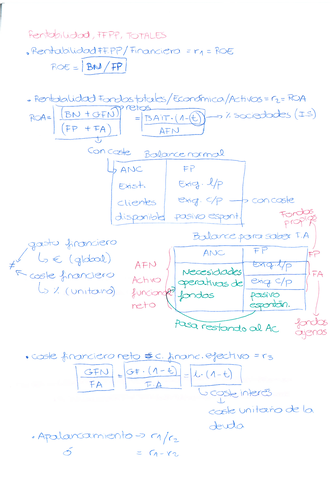 Rentabilidad, FFPP, TOTALES
• Rentabilidad FFPP / Financiera = r1 = ROE
ROE = BN / FP
• Rentabilidad Fondos totales / Económica / Activos = r2 = ROA
netos
ROA = (BN + GFN) / (FP + FA) = BAIT · (1 - t) / AFN → % sociedades (I.S)
Con coste
Balance normal
ANC FP
Exist. Exig. l/p
clientes exig. c/p → con coste
disponible pasivo espont.
Fondos propios
Balance para saber T.A
ANC FP FP
Exig l/p
exig c/p FA
Necesidades operativas de fondos
pasivo espontán.
AFN
Activo funcional neto
≠ gasto financiero
↳ € (global)
coste financiero
↳ % (unitario)
Pasa restando al AC
fondos ajenos
• coste financiero neto o c. financ. efectivo = r3
GFN / FA = GF · (1 - t) / FA = i · (1 - t)
↳ coste interés
coste unitario de la deuda
• Apalancamiento → r1/r2
ó = r1 - r2